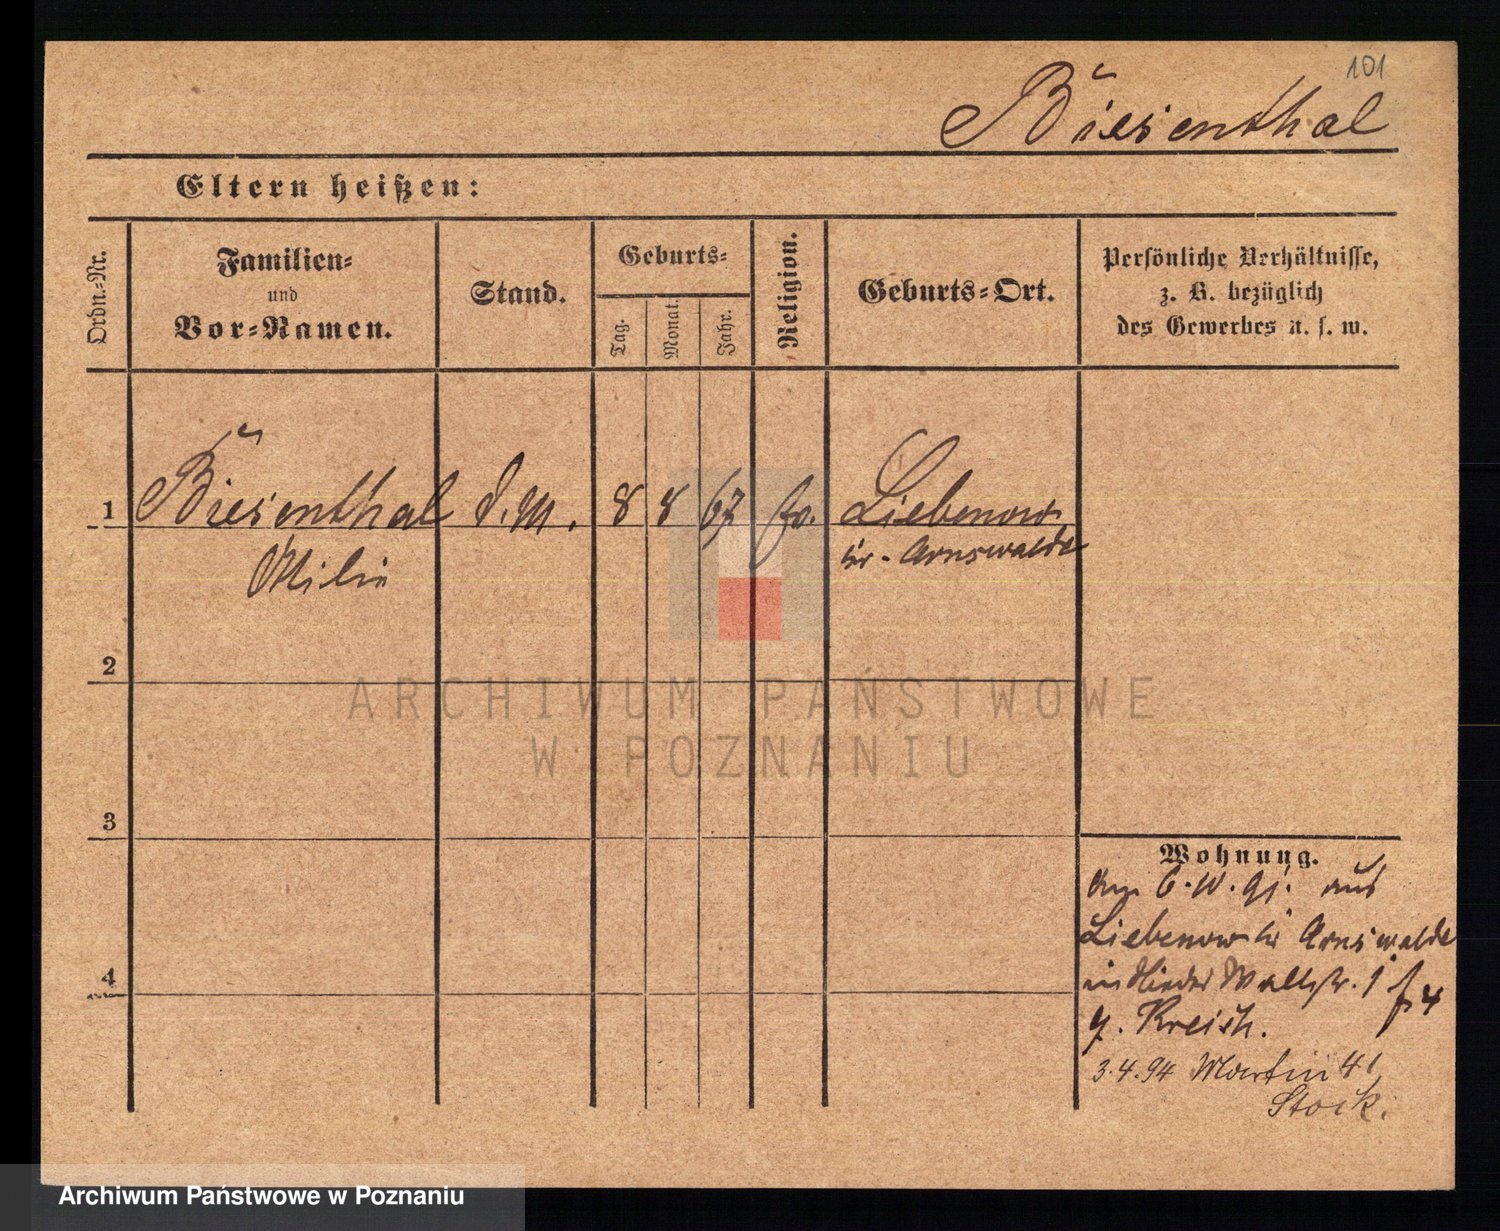 101
Biesenthal
Eltern heißen:
Ordn.-Nr.
Familien-
und
Vor-Namen.
Stand.
Geburts-
Tag.
Monat.
Jahr.
Religion.
Geburts-Ort.
Persönliche Verhältnisse,
z. B. bezüglich
des Gewerbes u. s. w.
1
Biesenthal d. M. 8 8 67 Liebenow
Kr. Arnswalde
2
ARCHIWUM PAŃSTWOWE
W POZNANIU
3
4
Wohnung.
am 6. 10. 91. aus
Liebenow Kr Arnswalde
in Wallstr. 1
Kreisch.
3.4.94 Martin 41
Stock.
Archiwum Państwowe w Poznaniu